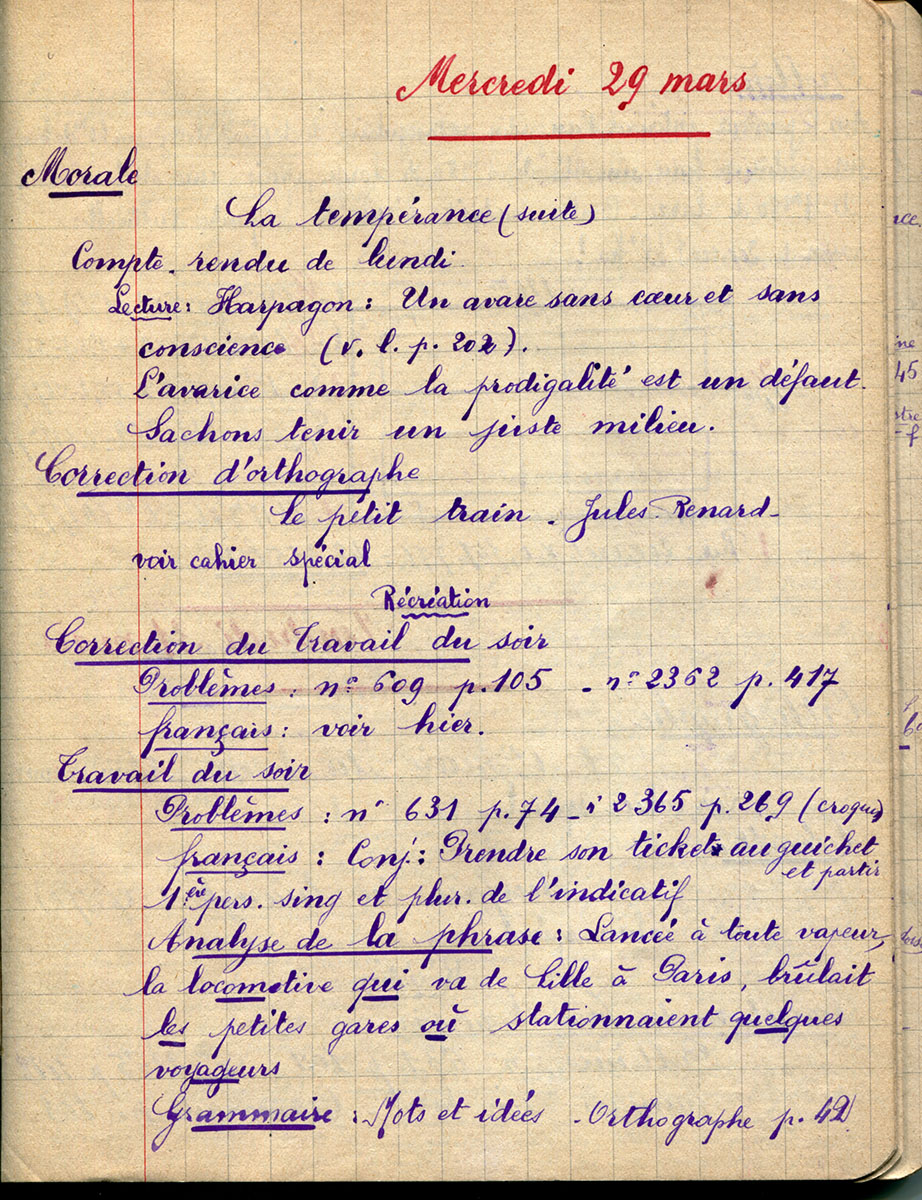 Mercredi 29 mars
Morale
La tempérance (suite)
Compte-rendu de lundi
Lecture : Harpagon : Un avare sans cœur et sans
conscience (v. l. p. 202).
L'avarice comme la prodigalité est un défaut.
Sachons tenir un juste milieu.
Correction d'orthographe
Le petit train - Jules Renard -
voir cahier spécial
Récréation
Correction du Travail du soir
Problèmes : n° 609 p. 105 - n° 2362 p. 417
français : voir hier.
Travail du soir
Problèmes : n° 631 p. 74 - n° 2365 p. 269 (croquis)
français : Conj : Prendre son ticket au guichet
et partir
1ère pers. sing et plur. de l'indicatif
Analyse de la phrase : Lancée à toute vapeur,
la locomotive qui va de Lille à Paris, brûlait
les petites gares où stationnaient quelques
voyageurs
Grammaire : Mots et idées - Orthographe p. 42